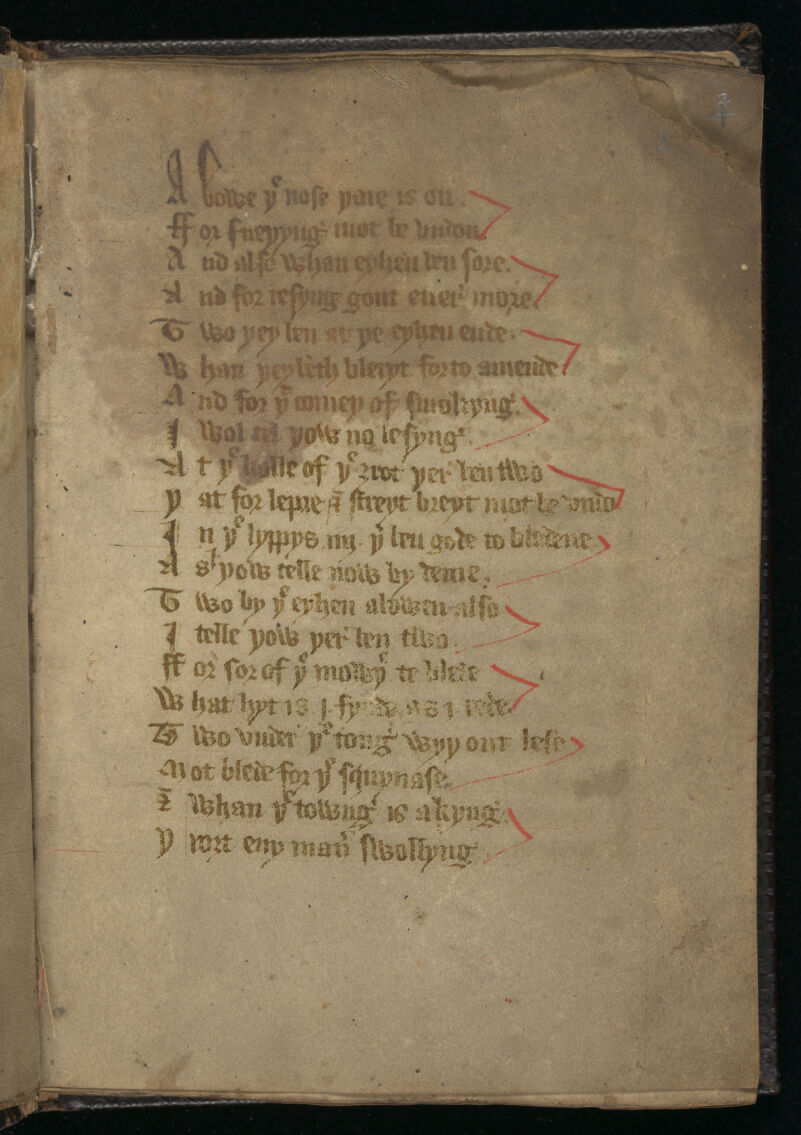 A bowe yͤ nose yare is on.
ff or fneyyng mot be vndon
A nd also whan eyhen ben sore.
A nd for resyng gout euer more.
T wo yey ben at ye eyhen ende.
W han yey beth bleryt forto amende
A nd for yͭ comey of smokyng.
I wol tel yow no lesyng.
A t yͤ holle of yͤ þrot yer ben two
y at for lepre & streyt breyt mot be vndo
I n yͤ lyppys iiij. yͬ ben gode to bledene
A s I yow telle now by dene.
T wo by yͤ eyhen abowen also
I telle yow yer ben two.
ff or sor of yͤ mowyͤ to blede
W hat hyt is I fynde as I rede.
T wo vnder yͤ tong wyyout lese
M ot blede for yͤ squynase.
& whan yͤ towng is akyng
y rort eny man swollyng